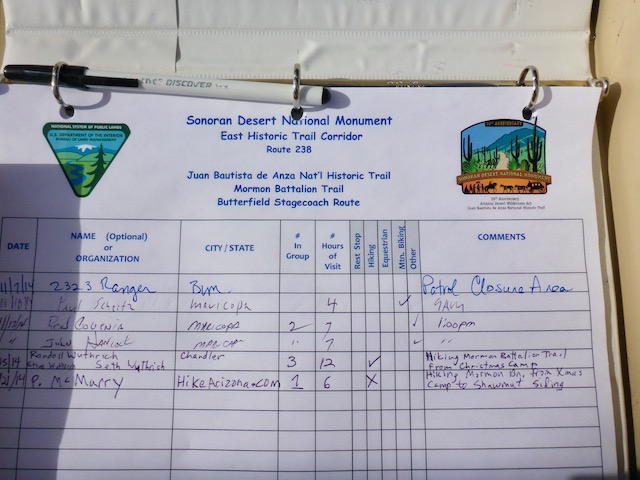 DISCOVER
NATIONAL SYSTEM OF PUBLIC LANDS
U.S. DEPARTMENT OF THE INTERIOR
BUREAU OF LAND MANAGEMENT
Sonoran Desert National Monument
East Historic Trail Corridor
Route 238
Juan Bautista de Anza Nat'l Historic Trail
Mormon Battalion Trail
Butterfield Stagecoach Route
10TH ANNIVERSARY
SONORAN DESERT NATIONAL MONUMENT
20th ANNIVERSARY
Arizona Desert Wilderness Act
Juan Bautista de Anza National Historic Trail
DATE NAME (Optional) or ORGANIZATION CITY/STATE # In Group # Hours of Visit Rest Stop Hiking Equestrian Mtn. Biking Other COMMENTS
2323 Ranger BLM Patrol Closure Area
Paul Maricopa 4 ✓
MARICOPA 2 7 ✓ 1:00pm
" John MARICOPA " 7 ✓ "
Randall Wuthrich Chandler
Seth Wuthrich 3 12 ✓ Hiking Mormon Battalion Trail
from Christmas Camp
P. McMurry HikeArizona.com 1 6 X Hiking Mormon Bn. from Xmas
Camp to Shawmut Siding